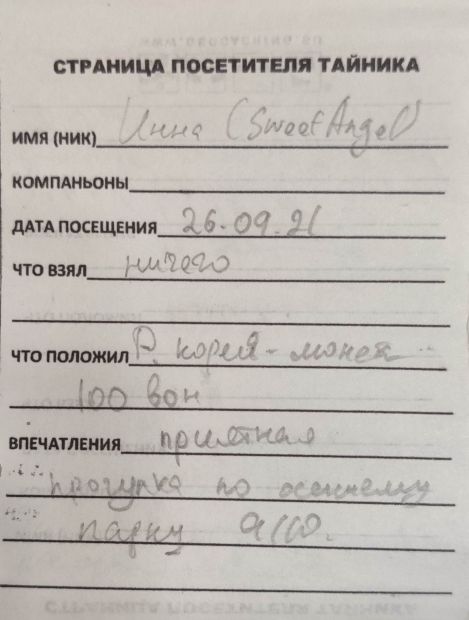 СТРАНИЦА ПОСЕТИТЕЛЯ ТАЙНИКА
ИМЯ (НИК) Инна (SweetAngel)
КОМПАНЬОНЫ
ДАТА ПОСЕЩЕНИЯ 26.09.21
ЧТО ВЗЯЛ ничего
ЧТО ПОЛОЖИЛ Р. Корея - монет
100 вон
ВПЕЧАТЛЕНИЯ приятная
прогулка по осеннему
парку